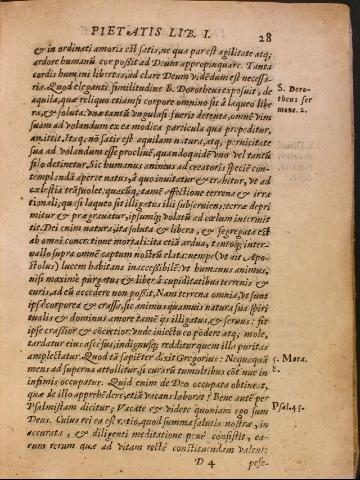 PIETATIS LIB. I. 28
& in ordinati amoris est satis, ne qua par est agilitate atq;
ardore humanū cor possit ad Deum appropinquare. Tanta
cordis humani libertas, ad clare Deum vidēdum est necessa-
ria. Quod eleganti similitudine B. Dorotheus exposuit, de
S. Doro-
theus ser
mone. 2.
aquila, quæ reliquo etiāsi corpore omnino sit à laqueo libe
ra, & soluta: vna tantū vngula si fuerit detenta, omnē vim
suam ad volandum ex ea modica particula qua præpeditur,
amittit. Itaq; nō satis est aquilam natura, atq; pernicitate
sua ad volandum esse procliuē, quandoquidē vno vel tantū
filo detinetur. Sic humanus animus ad creatoris speciē con-
templandā aperte natus, à quo inuitatur & trahitur, vt ad
cælestia trāsuolet: quacūq; tamē affectione terrena & irra-
tionali; quasi laqueo sit illigatus illi subseruiens: terræ depri
mitur & prægrauatur, ipsumq; volatū ad cælum intermit
tit. Dei enim natura, ita soluta & libera, & segregata est
ab omni concretione mortali: ita etiā ardua, tantoq; inter-
uallo supra omnē captum nostrū elata: nempe (vt ait Apo-
stolus) lucem habitans inaccessibilē: vt humanus animus,
nisi maximè purgatus & liber à cupiditatibus terrenis &
curis, ad eū accedere non possit. Nam terrena omnia, vt sunt
ipsæ corporea & crassa: sic animus quamuis natura sua spiri
tualis & domina amore tamē ijs illigatus, & seruus: fit
ipse crassior & cōcretior: vnde iniecto cōpedere atq; mole,
tardatur eius acies: indignusq; redditur quem illa puritas
amplectatur. Quod tā sapiēter dixit Gregorius: Nequaquā
5. Mora.
8.
mens ad superna attollitur, si curarū tumultibus cōtinue in
infimis occupatur. Quid enim de Deo occupata obtineat,
quæ de illo apprehēdere, etiā vacans laborat? Bene autē per
Psalmistam dicitur: Vacate & videte quoniam ego sum
Psal. 45.
Deus. Cuius rei ea est ratio, quod summa salutis nostræ, in
accurata, & diligenti meditatione penè consistit, ea-
rum rerum quæ ad vitam rectè constituendam valent:
D 4 pese-